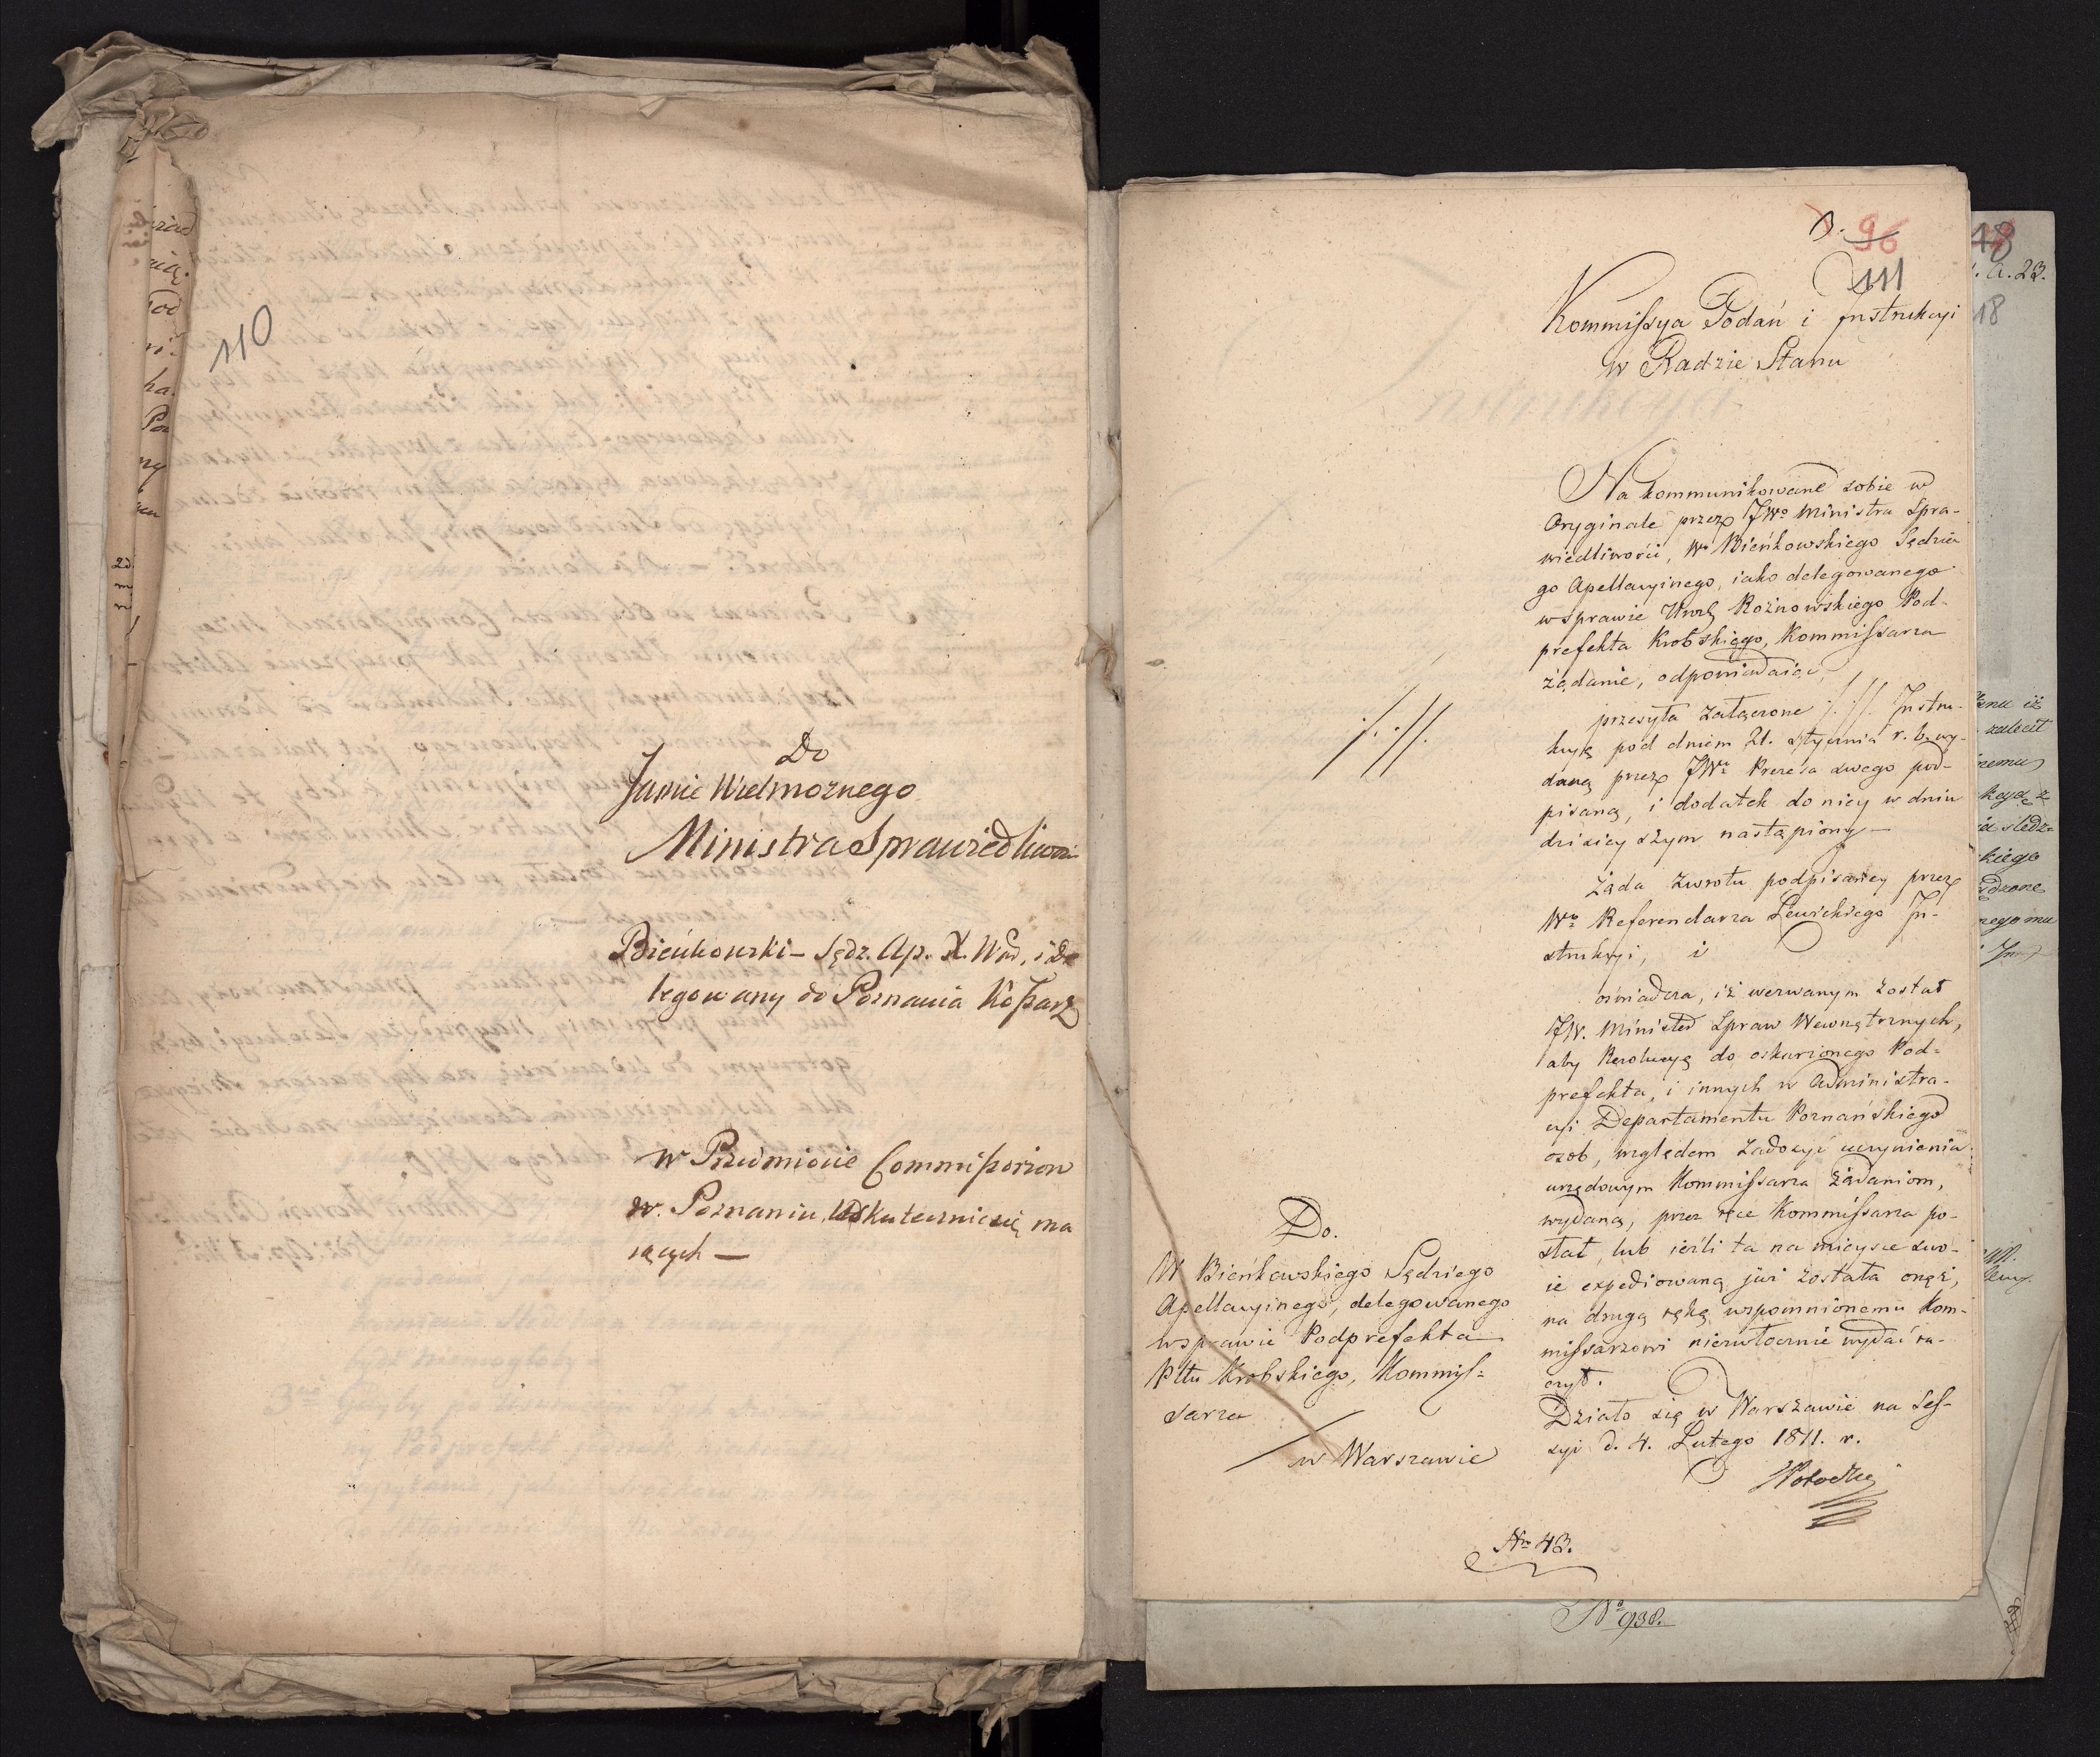 110
Do
Jaśnie Wielmożnego
Ministra Sprawiedliwości
Bieńkowski – Sędz. Ap. X. War. i De
legowany do Poznania Kossarz
w Przedmiocie Commissoriow
w Poznaniu, uskutecznić się ma
iących —
96
111
Kommissya Podań i Instrukcyi
w Radzie Stanu
Na kommunikowane sobie w
Oryginale przez JWo Ministra Spra-
wiedliwości, Wo Bieńkowskiego Sędzie
go Apellacyinego, iako delegowanego
w sprawie Rożnowskiego Pod-
prefekta Krobskiego, Kommissarza
żądanie, odpowiadaiąc,
przesyła załączone ·/.·//. Instru-
kcyą pod dniem 21. stycznia r. b. wy-
daną przez JWo Prezesa swego pod-
pisaną, i dodatek do niey w dniu
dzisieyszym nastąpiony —
żąda zwrotu podpisaney przez
Wo Referendarza Lewickiego In-
strukcyi, i
oświadcza, iż wezwanym został
JW. Minister Spraw Wewnętrznych,
aby Rezolucyą do oskarżonego Pod-
prefekta, i innych w Administra-
cyi Departamentu Poznańskiego
osob, względem zadosyć uczynienia
urzędowym Kommissarza żądaniom,
wydaną, przez ręce Kommissarza po-
słał, lub ieśli ta na mieysce swo-
ie expediowaną już została onęż,
na drugą rękę wspomnionemu Kom-
missarzowi niezwłocznie wydać ra-
czył.
Działo się w Warszawie na Ses-
syi d. 4. Lutego 1811. r.
·/.·//.
Do.
W Bieńkowskiego Sędziego
Apellacyinego, delegowanego
w sprawie Podprefekta
Pttu Krobskiego, Kommis-
sarza
w Warszawie
Nro 43.
No 938.